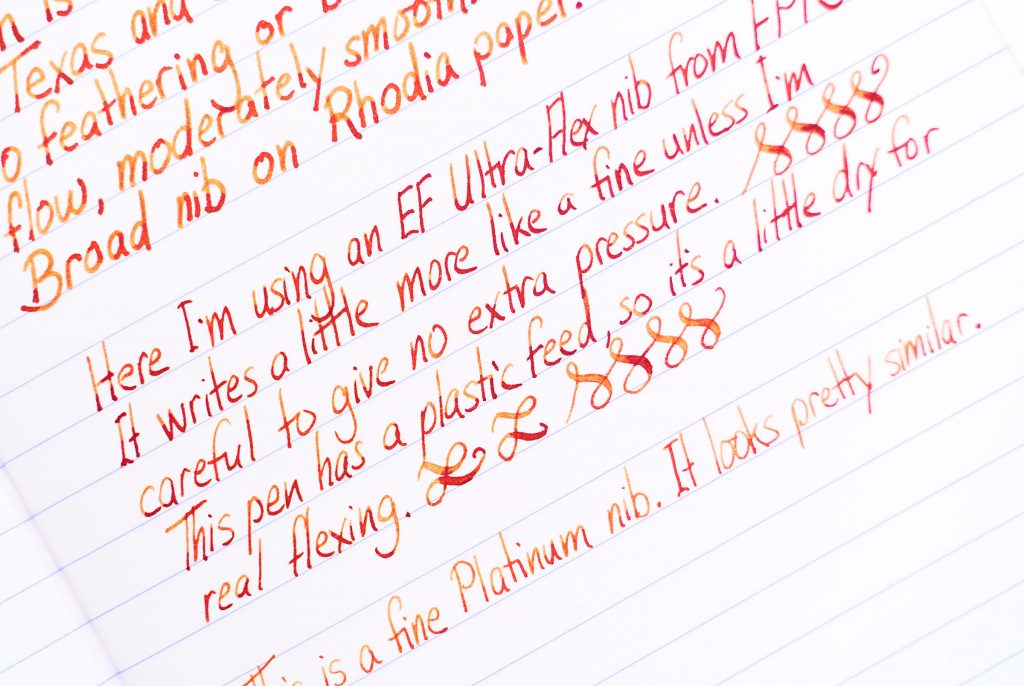 Texas and
feathering or
flow, moderately smooth
Broad nib on Rhodia paper.
Here I'm using an EF Ultra-Flex nib from FPR
It writes a little more like a fine unless I'm
careful to give no extra pressure.
This pen has a plastic feed, so it's a little dry for
real flexing.
This is a fine Platinum nib. It looks pretty similar.